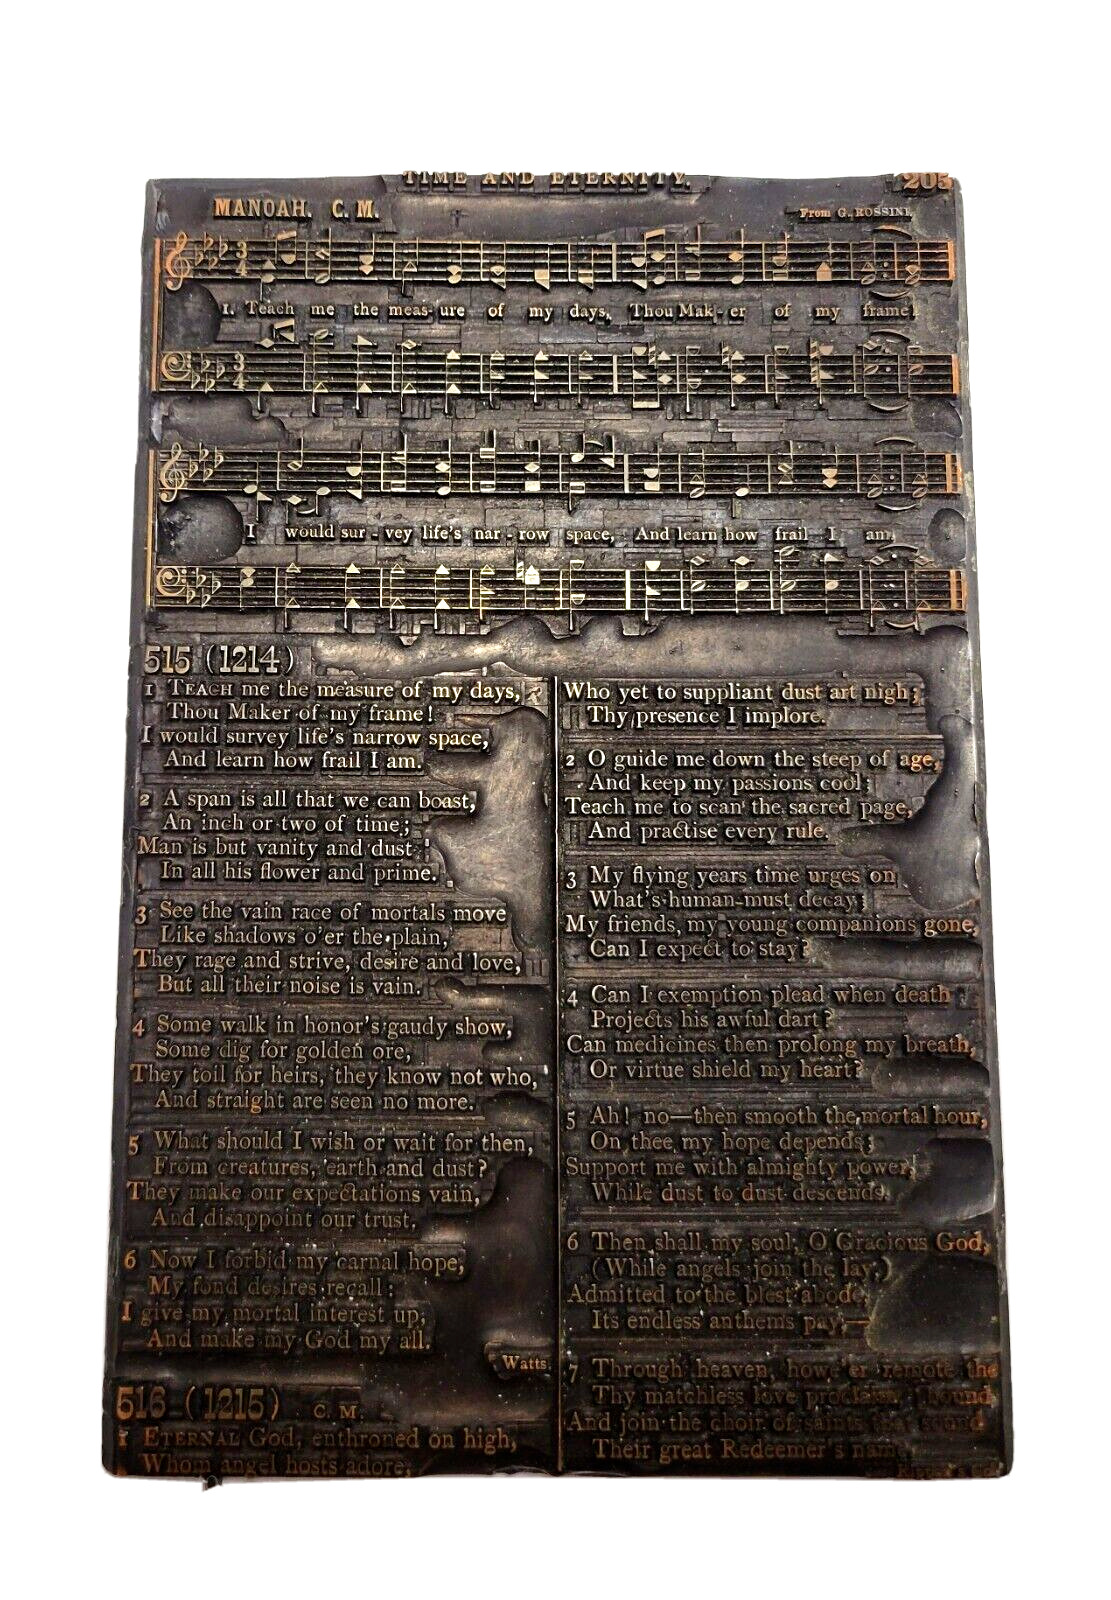 TIME AND ETERNITY. 205
MANOAH. C. M. From G. ROSSINI.
1. Teach me the meas-ure of my days, Thou Mak-er of my frame!
I would sur-vey life's nar-row space, And learn how frail I am.
515 (1214)
1 TEACH me the measure of my days,
Thou Maker of my frame!
I would survey life's narrow space,
And learn how frail I am.
2 A span is all that we can boast,
An inch or two of time;
Man is but vanity and dust
In all his flower and prime.
3 See the vain race of mortals move
Like shadows o'er the plain,
They rage and strive, desire and love,
But all their noise is vain.
4 Some walk in honor's gaudy show,
Some dig for golden ore,
They toil for heirs, they know not who,
And straight are seen no more.
5 What should I wish or wait for then,
From creatures, earth and dust?
They make our expectations vain,
And disappoint our trust.
6 Now I forbid my carnal hope,
My fond desires recall:
I give my mortal interest up,
And make my God my all.
Watts.
516 (1215) C. M.
1 ETERNAL God, enthroned on high,
Whom angel hosts adore;
Who yet to suppliant dust art nigh;
Thy presence I implore.
2 O guide me down the steep of age,
And keep my passions cool;
Teach me to scan the sacred page,
And practise every rule.
3 My flying years time urges on
What's human must decay;
My friends, my young companions gone,
Can I expect to stay?
4 Can I exemption plead when death
Projects his awful dart?
Can medicines then prolong my breath,
Or virtue shield my heart?
5 Ah! no—then smooth the mortal hour,
On thee my hope depends;
Support me with almighty power,
While dust to dust descends.
6 Then shall my soul, O Gracious God,
(While angels join the lay,)
Admitted to the blest abode,
Its endless anthems pay;—
7 Through heaven, howe'er remote the
Thy matchless love proclaim bound,
And join the choir of saints that sound
Their great Redeemer's name